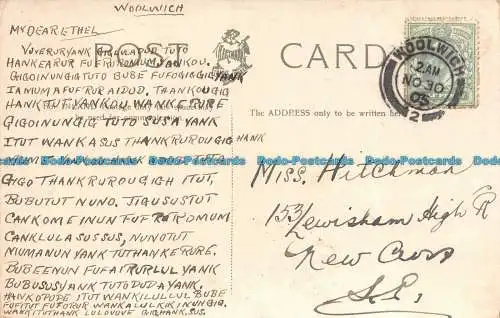 WOOLWICH
MY DEAR ETHEL
POST CARD
HANKEARUR FUFRUROMUMYANKOU.
GIGOINUNGIGTUTO BUBE FUFOGIGGIGYANK
IAMUMAFUFRURAIDUD. THANKOUGIG
HANKTUT YANKOU WANKERURE
GIGOINUNGIG TUTO SUSAYANK
ITUT WANKASUS THANKRUROUGIGHANK
GIGO THANKRUROUGIGH ITUT,
BUBUTUT NUNO. TIGUSUSTUT
CANKOMEINUN FUFRUROMUM
CANKLULASUSSUS, NUNOTUT
MUMANUNYANK TUTHANKERURE.
BUBEENUN FUFAIRURLULYANK
BUBUSUSYANK TUTODUDAYANK.
HANKOPUPE ITUT WANKILULLUL BUBE
FUFITUT FUFORUR WANKALULKIKINUNGIG.
WANKITUTHANK LULOVUVE GIGHANK.SUS.
The ADDRESS only to be written here
WOOLWICH
2 AM
NO 30
05
2
Miss. Hitchman
153 Lewisham High R
New Cross
S.E.
Bodo-Postcards Bodo-Postcards Bodo-Postcards Bodo-Postcards